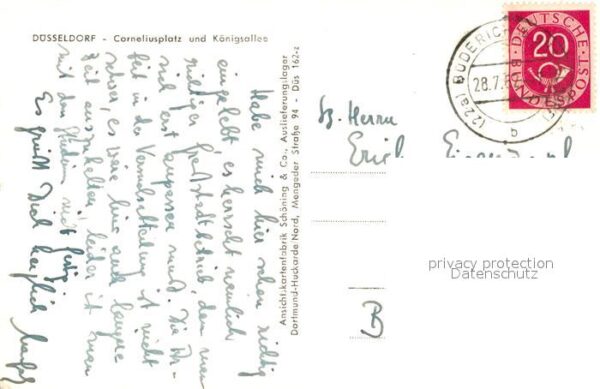 DÜSSELDORF - Corneliusplatz und Königsallee
Habe mich hier schon richtig
eingelebt es herrscht nämlich
riesiger Großstadtbetrieb, dem man
sich erst anpassen muß. Die
in der ist nicht
schwer, es wäre hier auch längere
Zeit auszuhalten leider ist man
mit dem Studium nicht fertig
Es grüßt Dich herzlich
Ansichtskartenfabrik Schöning & Co., Auslieferungslager
Dortmund-Huckarde Nord, Mengeder Straße 94 - Düs 162-z
(22a) BÜDERICH
28.7.5
b
DEUTSCHE BUNDESPOST
20
Herrn
Erich
B
privacy protection
Datenschutz